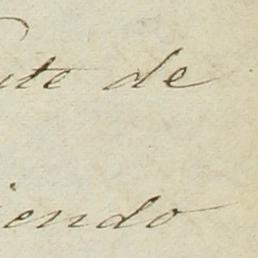 te de
iendo